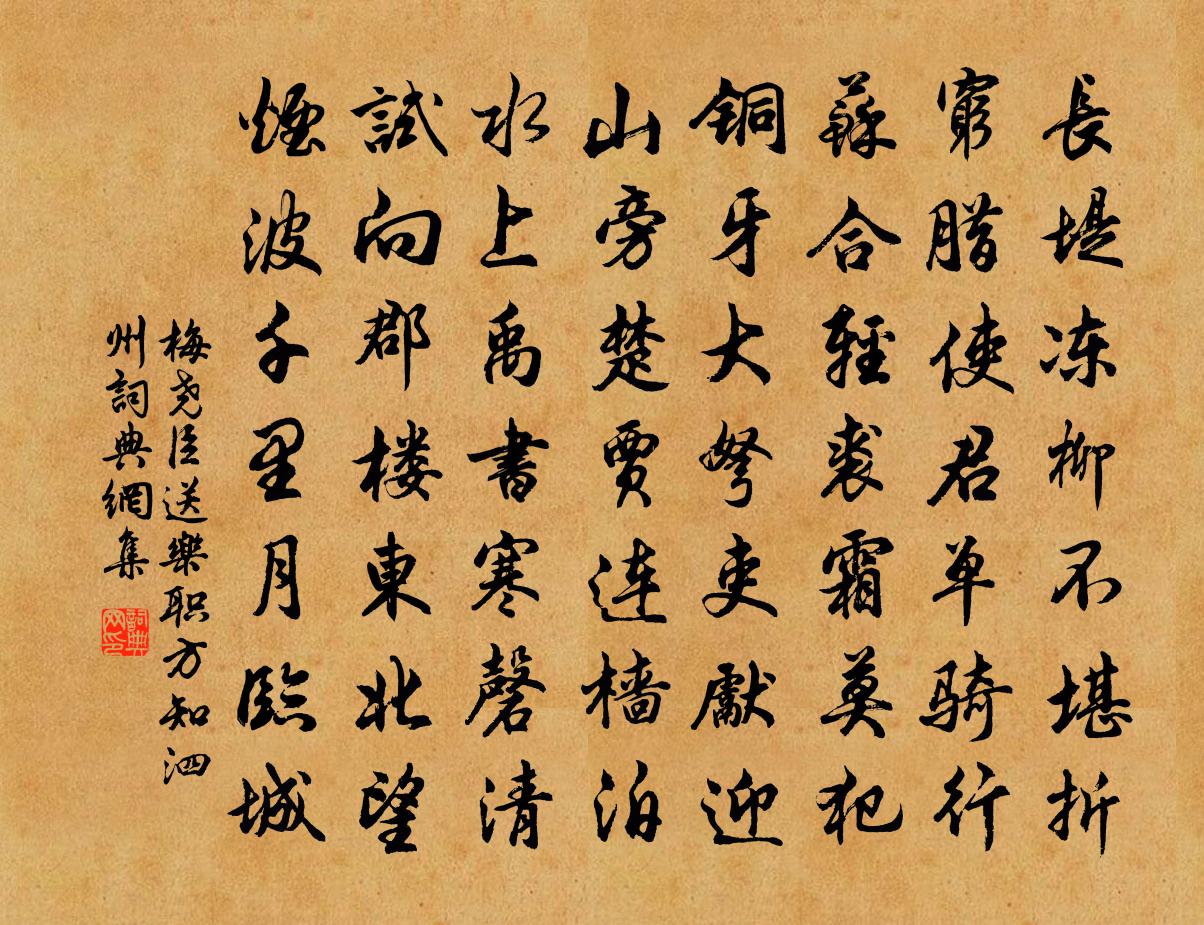 長堤冻柳不堪折
窮腊使君单騎行
蘇合輕裘霜莫犯
銅牙大弩吏獻迎
山旁楚賈連檣泊
水上禹書寒磬清
試向郡楼東北望
煙波千里月臨城
梅尧臣送樂职方知泗
州詞典網集
詞典
网印